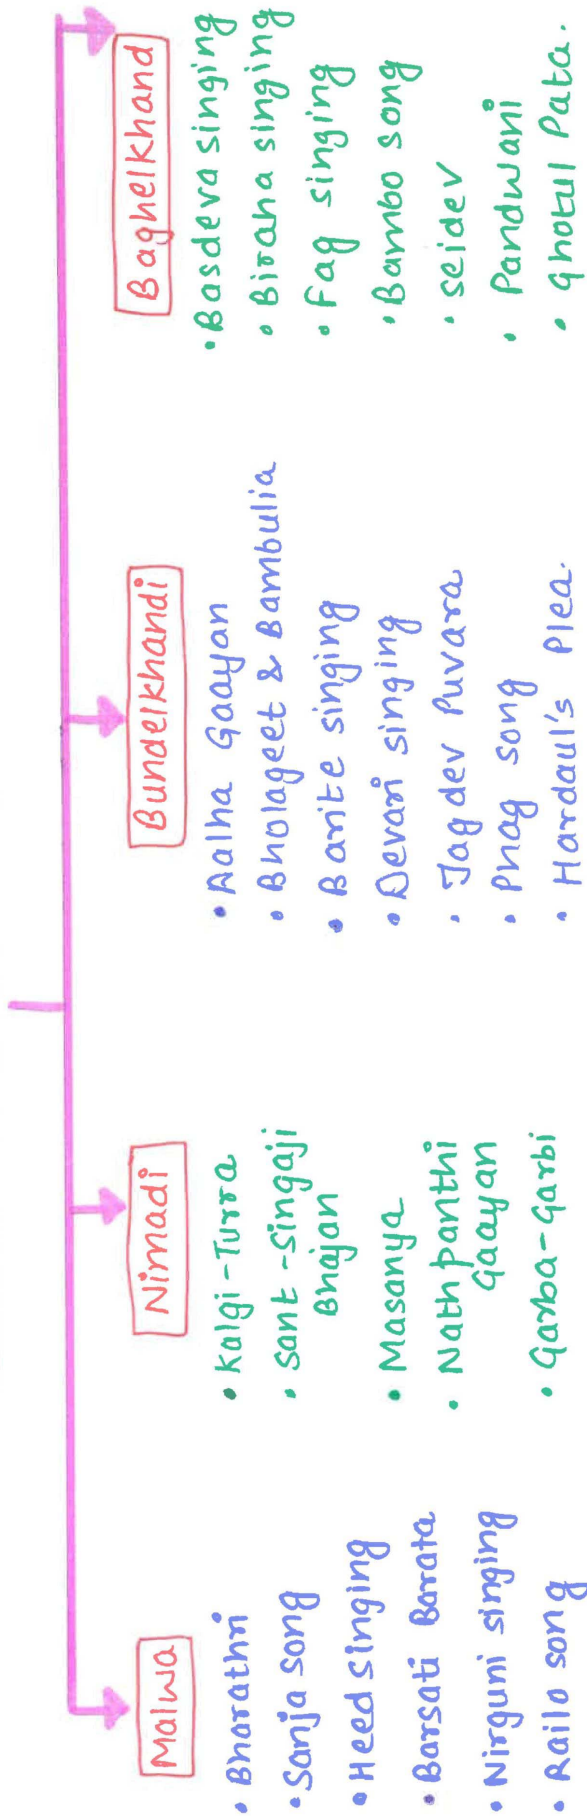 Malwa
• Bharathri
• Sanja song
• Heed singing
• Barsati Barata
• Nirguni singing
• Railo song
Nimadi
• Kalgi-Turra
• Sant-Singaji
Bhajan
• Masanya
• Nathpanthi
Gaayan
• Garba-Garbi
Bundelkhandi
• Aalha Gaayan
• Bholageet & Bambulia
• Barite singing
• Devari singing
• Jagdev Puvara
• Phag song
• Hardaul's Plea.
Baghelkhand
• Basdeva singing
• Biraha singing
• Fag singing
• Bambo song
• seidev
• Pandwani
• Ghotul Pata.